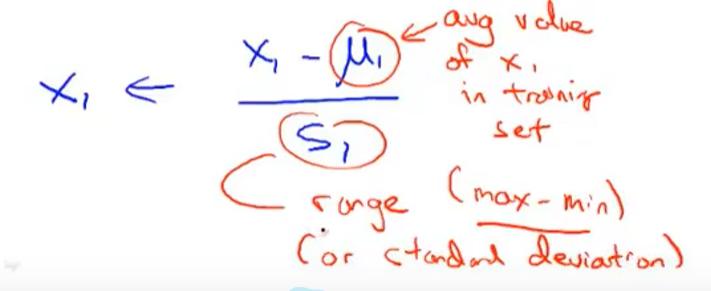 x₁ ← (x₁ - μ₁) / s₁
avg value
of x₁
in training
set
range (max - min)
(or standard deviation)